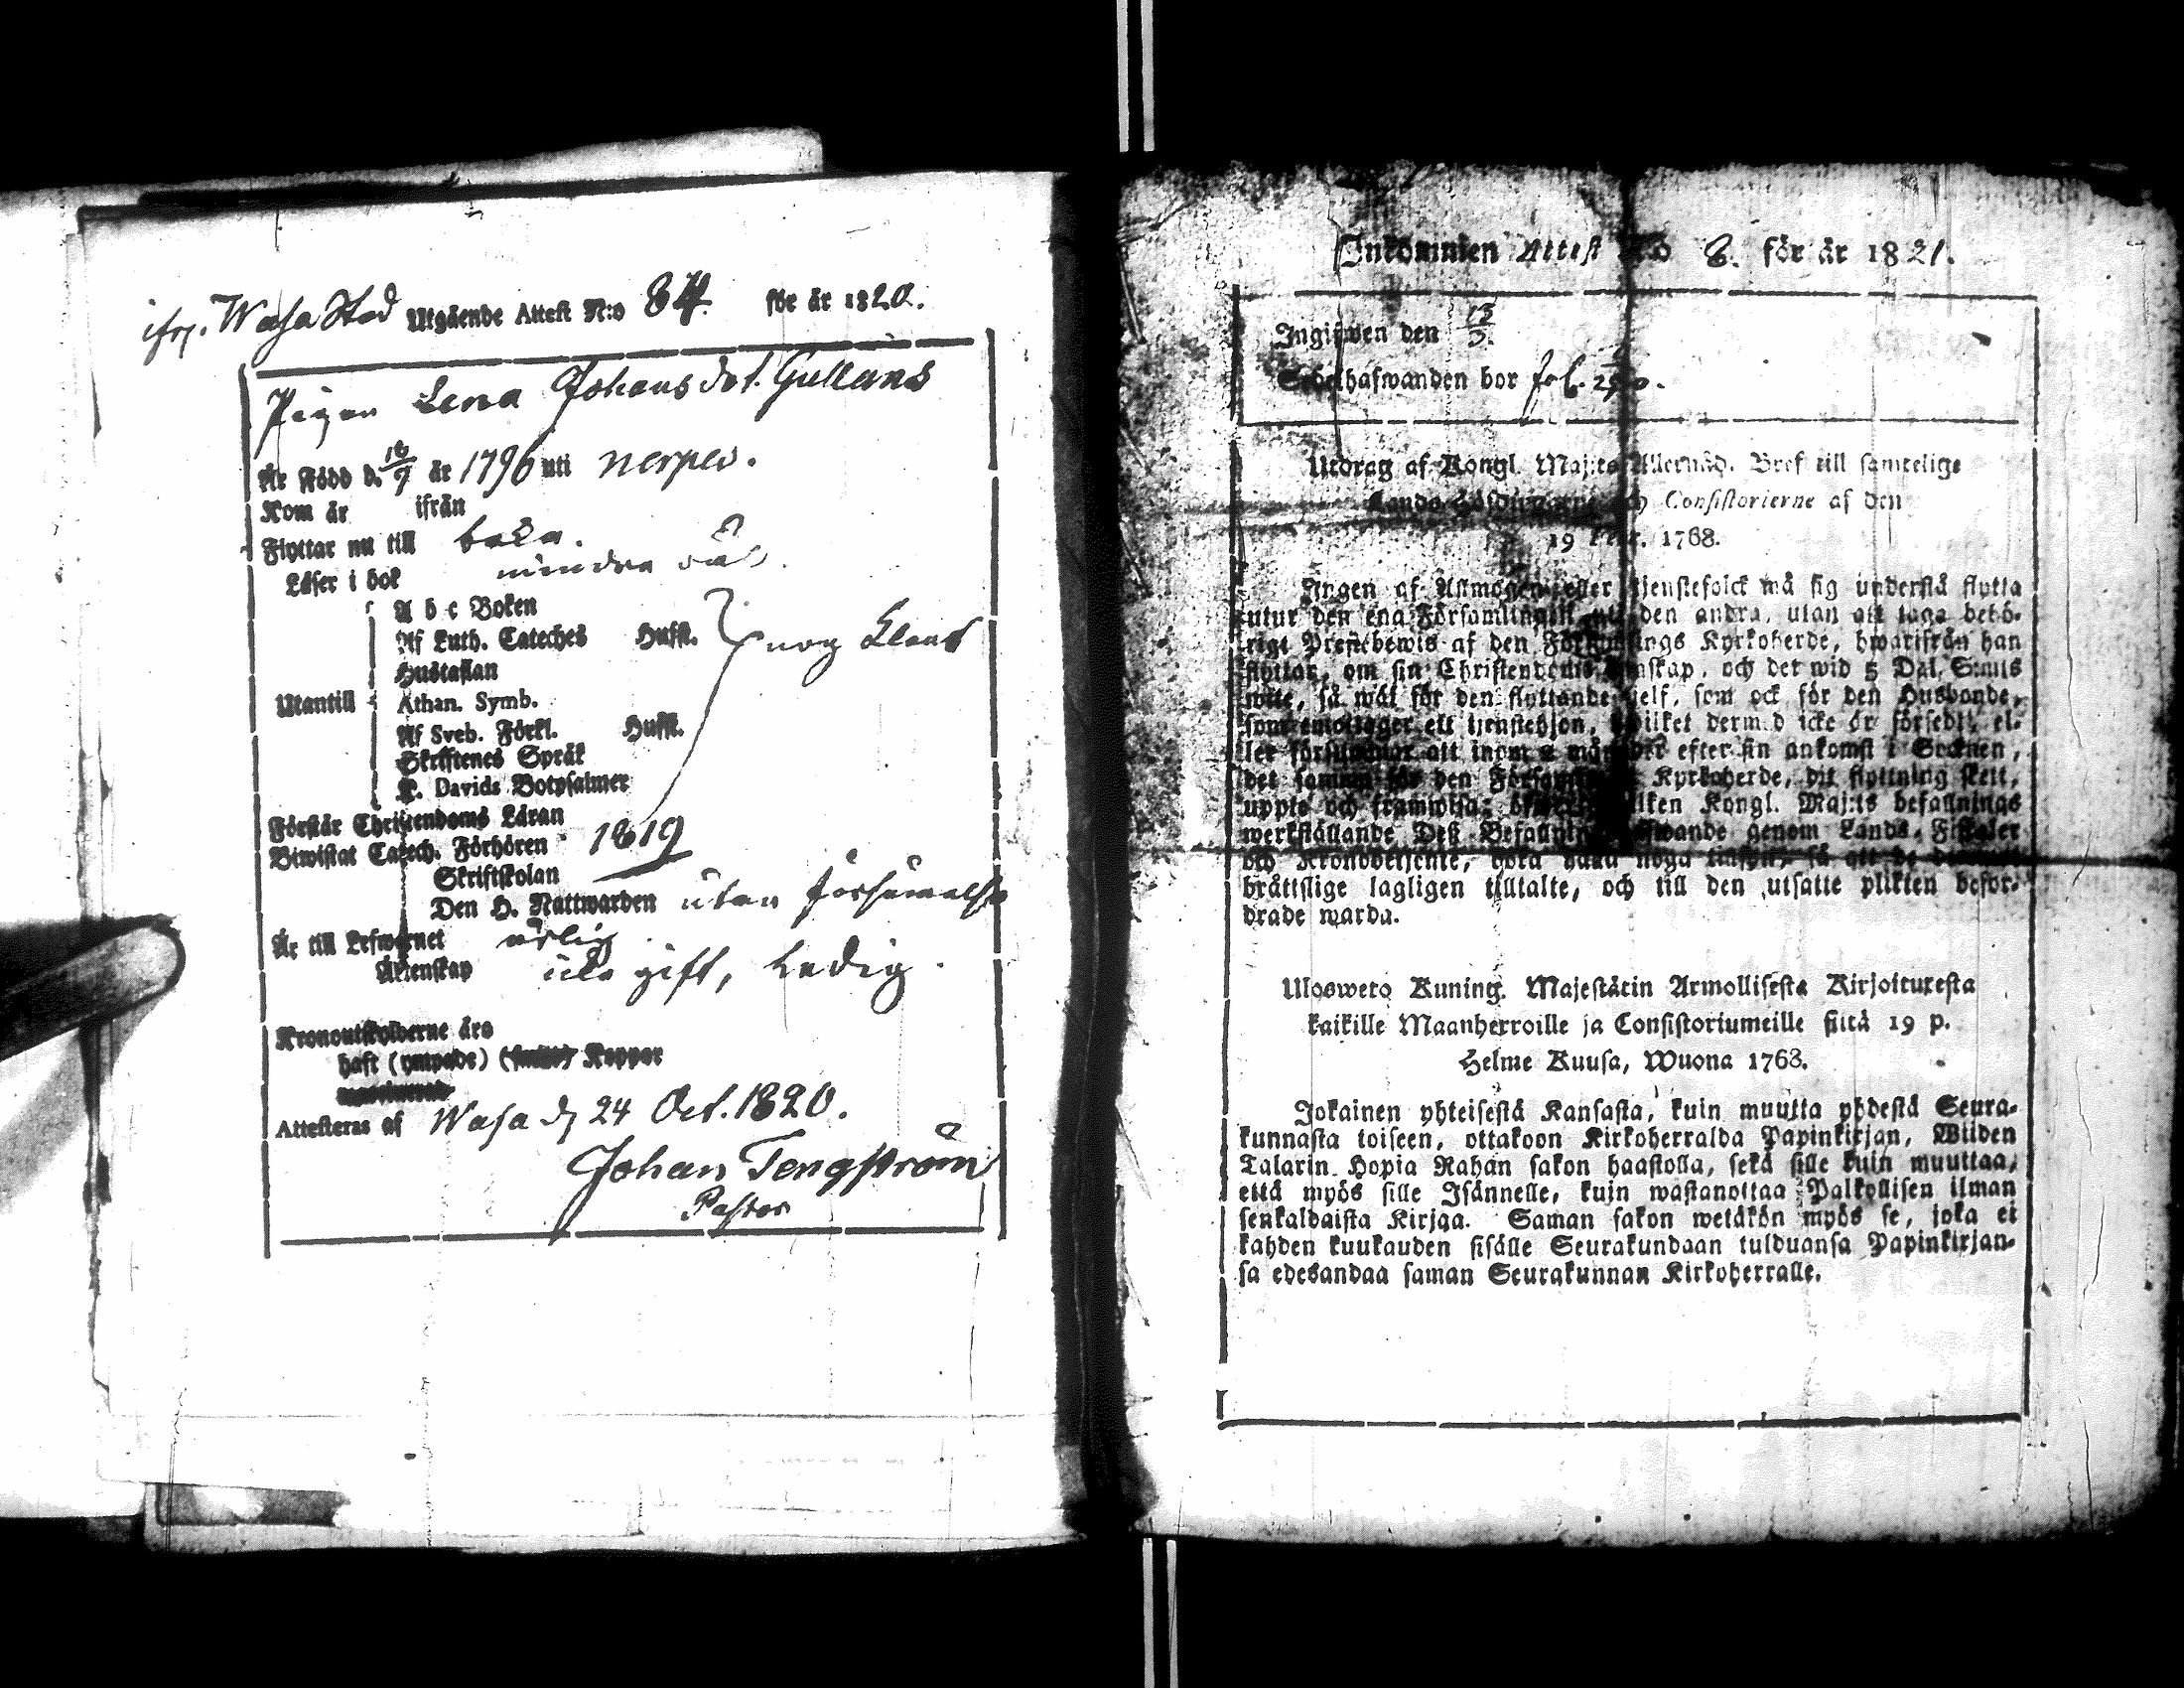 ifr. Wasa Stad Utgående Attest N:o 84. för år 1820.
Pigan Lena Johansdot. Gullans
Är Född d. 16/9 år 1796 uti nerpes.
Kom år ifrån
Flyttar nu till baka.
Läser i bok mindre väl.
A b c Boken
Af Luth. Cateches Hufst. nog klent
Hustaflan
Utantill Athan. Symb.
Af Sveb. Förkl. Hufst.
Skriftenes Språk
K. Davids Botpsalmer
Förstår Christendoms Läran
Biwistat Catech. Förhören 1819
Skriftskolan
Den H. Nattwarden utan försummelse
Är till Lefwernet ärlig
Äktenskap icke gift, Ledig.
Kronoutskylderne åro
haft (ympade) Koppor
Attesteras af Wasa d. 24 Oct. 1820.
Johan Tengström
Pastor
Inkommen Attest N:o 8. för år 1821.
Ingifwen den
Sedelhafwanden bor fol.
Utdrag af Kongl. Maj:ts Allernåd. Bref till samtelige
Lands Höfdingarne och Consistorierne af den
19 Febr. 1768.
Ingen af Allmogen eller tjenstefolck må sig understå flytta
utur den ena Församlingen uti den andra, utan att taga behö-
rigt Prestebewis af den Församlings Kyrkoherde, hwarifrån han
flyttar, om sin Christendoms kunskap, och det wid 5 Dal. S:mts
wite, så wäl för den flyttande sjelf, som ock för den Husbonde,
som emottager ett tjenstehjon, hwilket dermed icke är försedt, el-
ler försummar att inom 2 månader efter sin ankomst i Socknen,
det samma för den Församlings Kyrkoherde, dit flyttning skett,
uppte och framwisa; öfwer hwilken Kongl. Maj:ts befallnings
werkställande Deß Befallningshafwande genom Lands Fiskaler
och Kronobetjente, böra hafwa noga tilsyn, så att de
bråttslige lagligen tilltalte, och till den utsatte plikten befor-
drade warda.
Ulosweto Kuning. Majestätin Armollisesta Kirjoituxesta
kaikille Maanherroille ja Consistoriumeille siitä 19 p.
Helme Kuusa, Wuona 1768.
Jokainen yhteisestä Kansasta, kuin muutta yhdestä Seura-
kunnasta toiseen, ottakoon Kirkoherralda Papinkirjan, Wiiden
Talarin Hopia Rahan sakon haastolla, sekä sille kuin muuttaa,
että myös sille Isännelle, kuin wastanottaa Palkollisen ilman
senkaldaista Kirjaa. Saman sakon wetäkön myös se, joka ei
kahden kuukauden sisälle Seurakundaan tulduansa Papinkirjan-
sa edesandaa saman Seurakunnan Kirkoherralle.